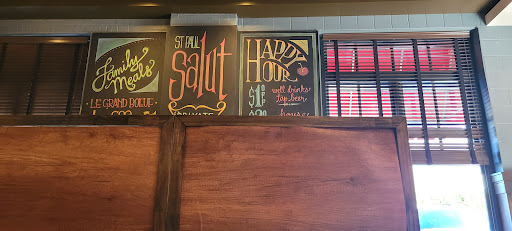 Family
Meals
LE GRAND BOEUF
ST PAUL
Salut
PRIVATE
HAPPY
HOUR
$1 OFF
well drinks
tap beer
house